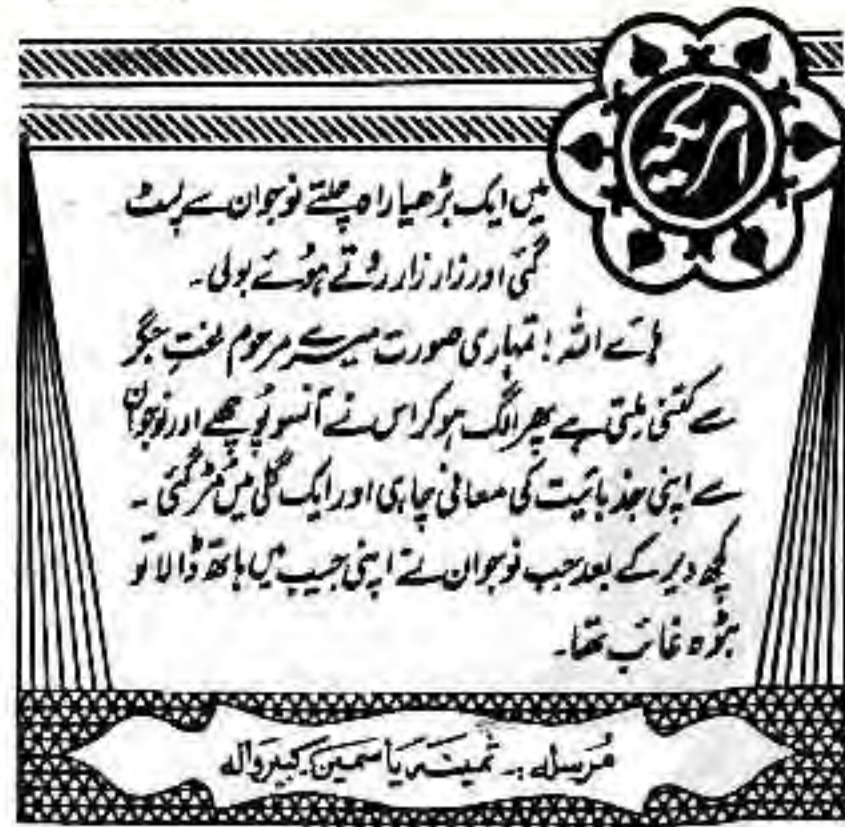 امریکہ
میں ایک بڑھیا راہ چلتے نوجوان سے لپٹ
گئی اور زار زار روتے ہوئے بولی۔
ہائے اللہ! تمہاری صورت میرے مرحوم لختِ جگر
سے کتنی ملتی ہے پھر الگ ہو کر اس نے آنسو پونچھے اور نوجوان
سے اپنی جذباتیت کی معافی چاہی اور ایک گلی میں مڑ گئی۔
کچھ دیر کے بعد جب نوجوان نے اپنی جیب میں ہاتھ ڈالا تو
بٹوہ غائب تھا۔
مُرسلہ :۔ ثمینہ یاسمین۔ کبیروالہ